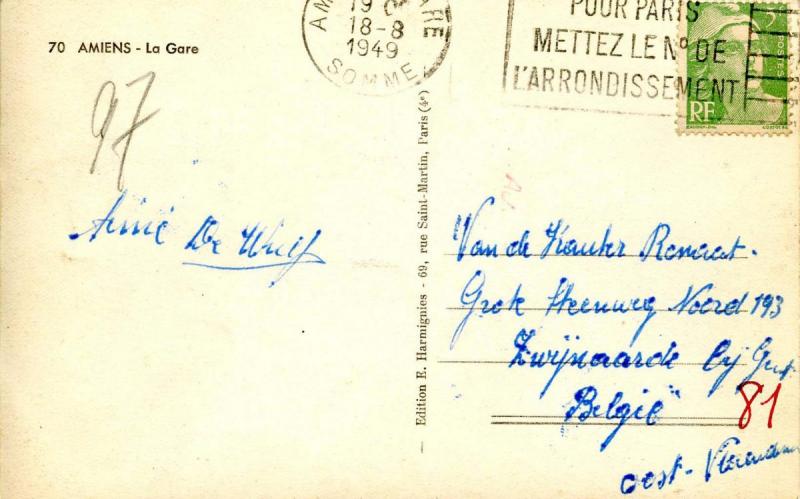 70 AMIENS - La Gare
GARE
18-8
1949
SOMME
POUR PARIS
METTEZ LE No DE
L'ARRONDISSEMENT
POSTES
RF
97
De Wulf
Edition E. Harmignies - 69, rue Saint-Martin, Paris (4e)
Van de Kauter Romaat.
Grote Steenweg Noord 193
Zwijnaarde bij Gent
België
81
Oost-Vlaanderen